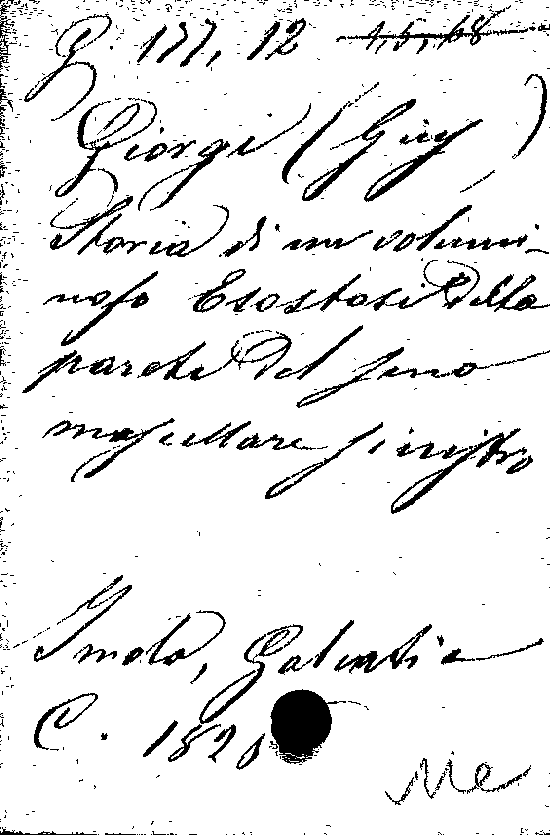 G. 177, 12 1,5,68
Giorgi (Gius)
Storia di un volumi-
noso Esostosi della
parete del seno
mascellare sinistro
Imola, Galeati e
C. 1820
Me